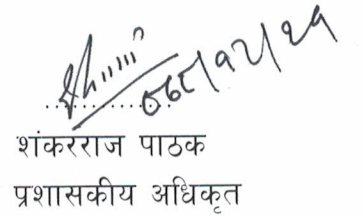 ०७८/१२/२१
शंकरराज पाठक
प्रशासकीय अधिकृत